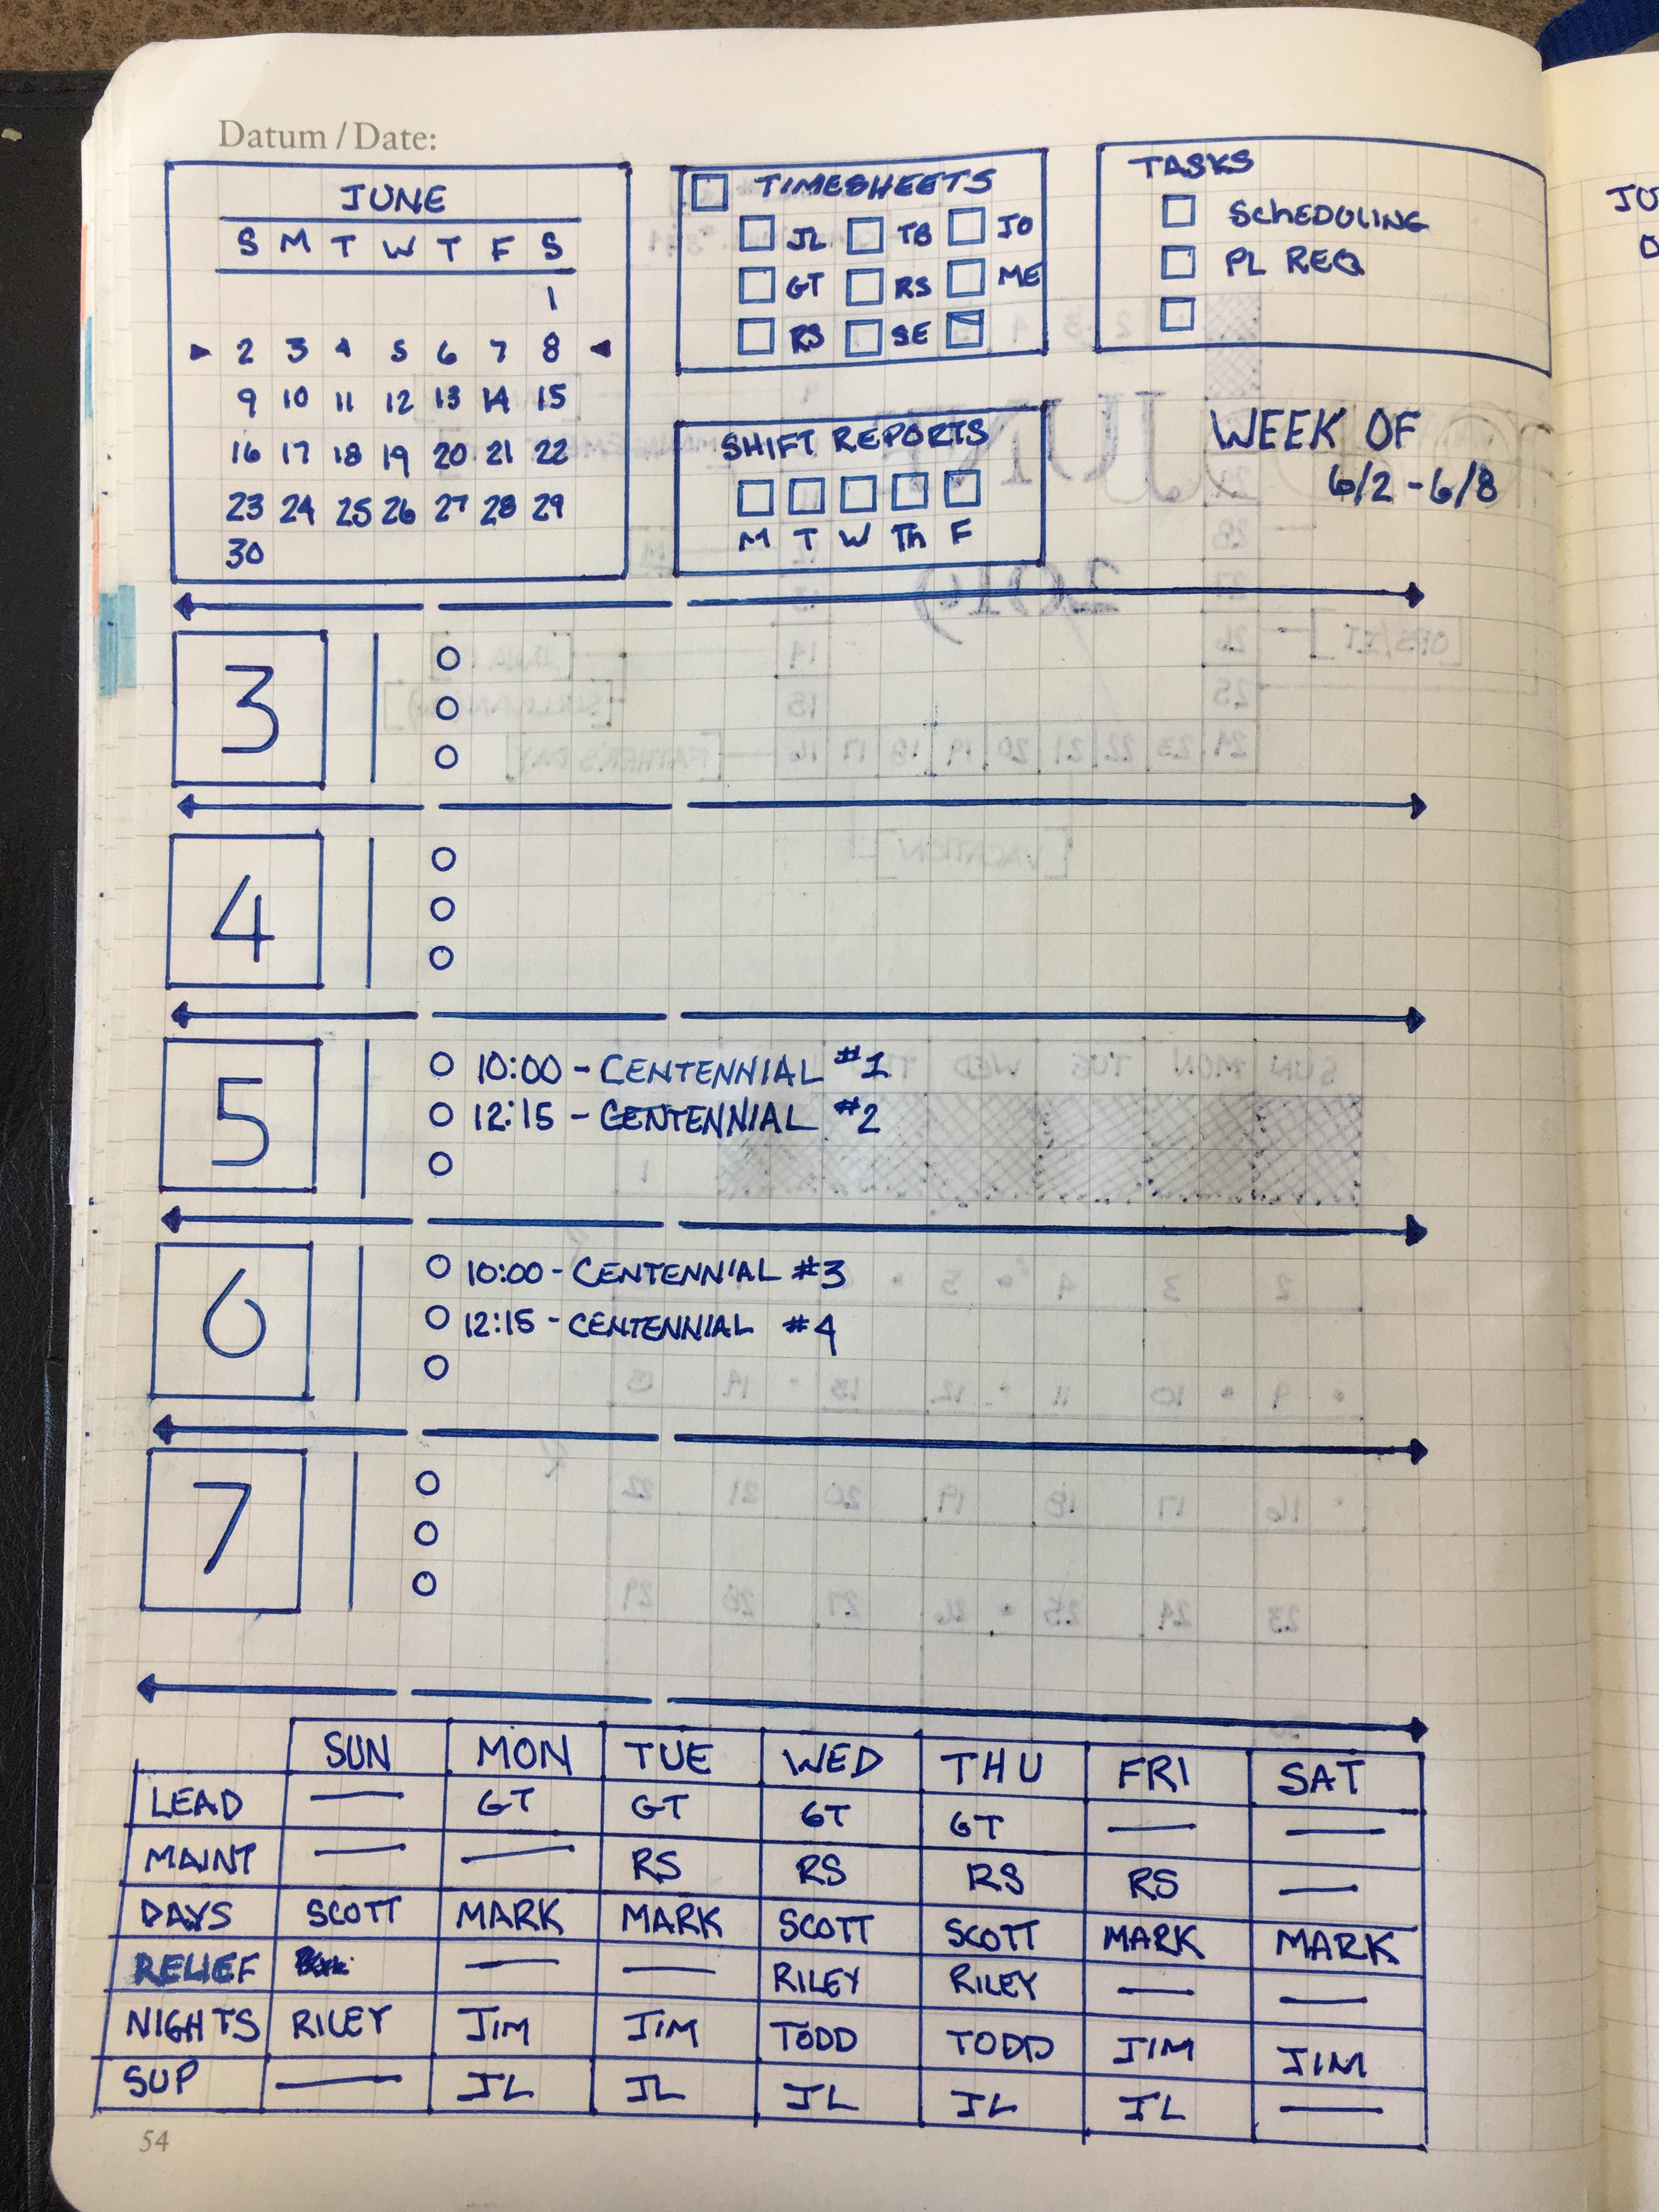 Datum / Date:
JUNE
S M T W T F S
1
2 3 4 5 6 7 8
9 10 11 12 13 14 15
16 17 18 19 20 21 22
23 24 25 26 27 28 29
30
TIMESHEETS
JL TB JO
GT RS ME
RS SE
TASKS
SCHEDULING
PL REQ
SHIFT REPORTS
M T W Th F
WEEK OF
6/2 - 6/8
3
4
5
10:00 - CENTENNIAL #1
12:15 - CENTENNIAL #2
6
10:00 - CENTENNIAL #3
12:15 - CENTENNIAL #4
7
SUN MON TUE WED THU FRI SAT
LEAD — GT GT GT GT — —
MAINT — — RS RS RS RS —
DAYS SCOTT MARK MARK SCOTT SCOTT MARK MARK
RELIEF — — RILEY RILEY — —
NIGHTS RILEY JIM JIM TODD TODD JIM JIM
SUP — JL JL JL JL JL —
54